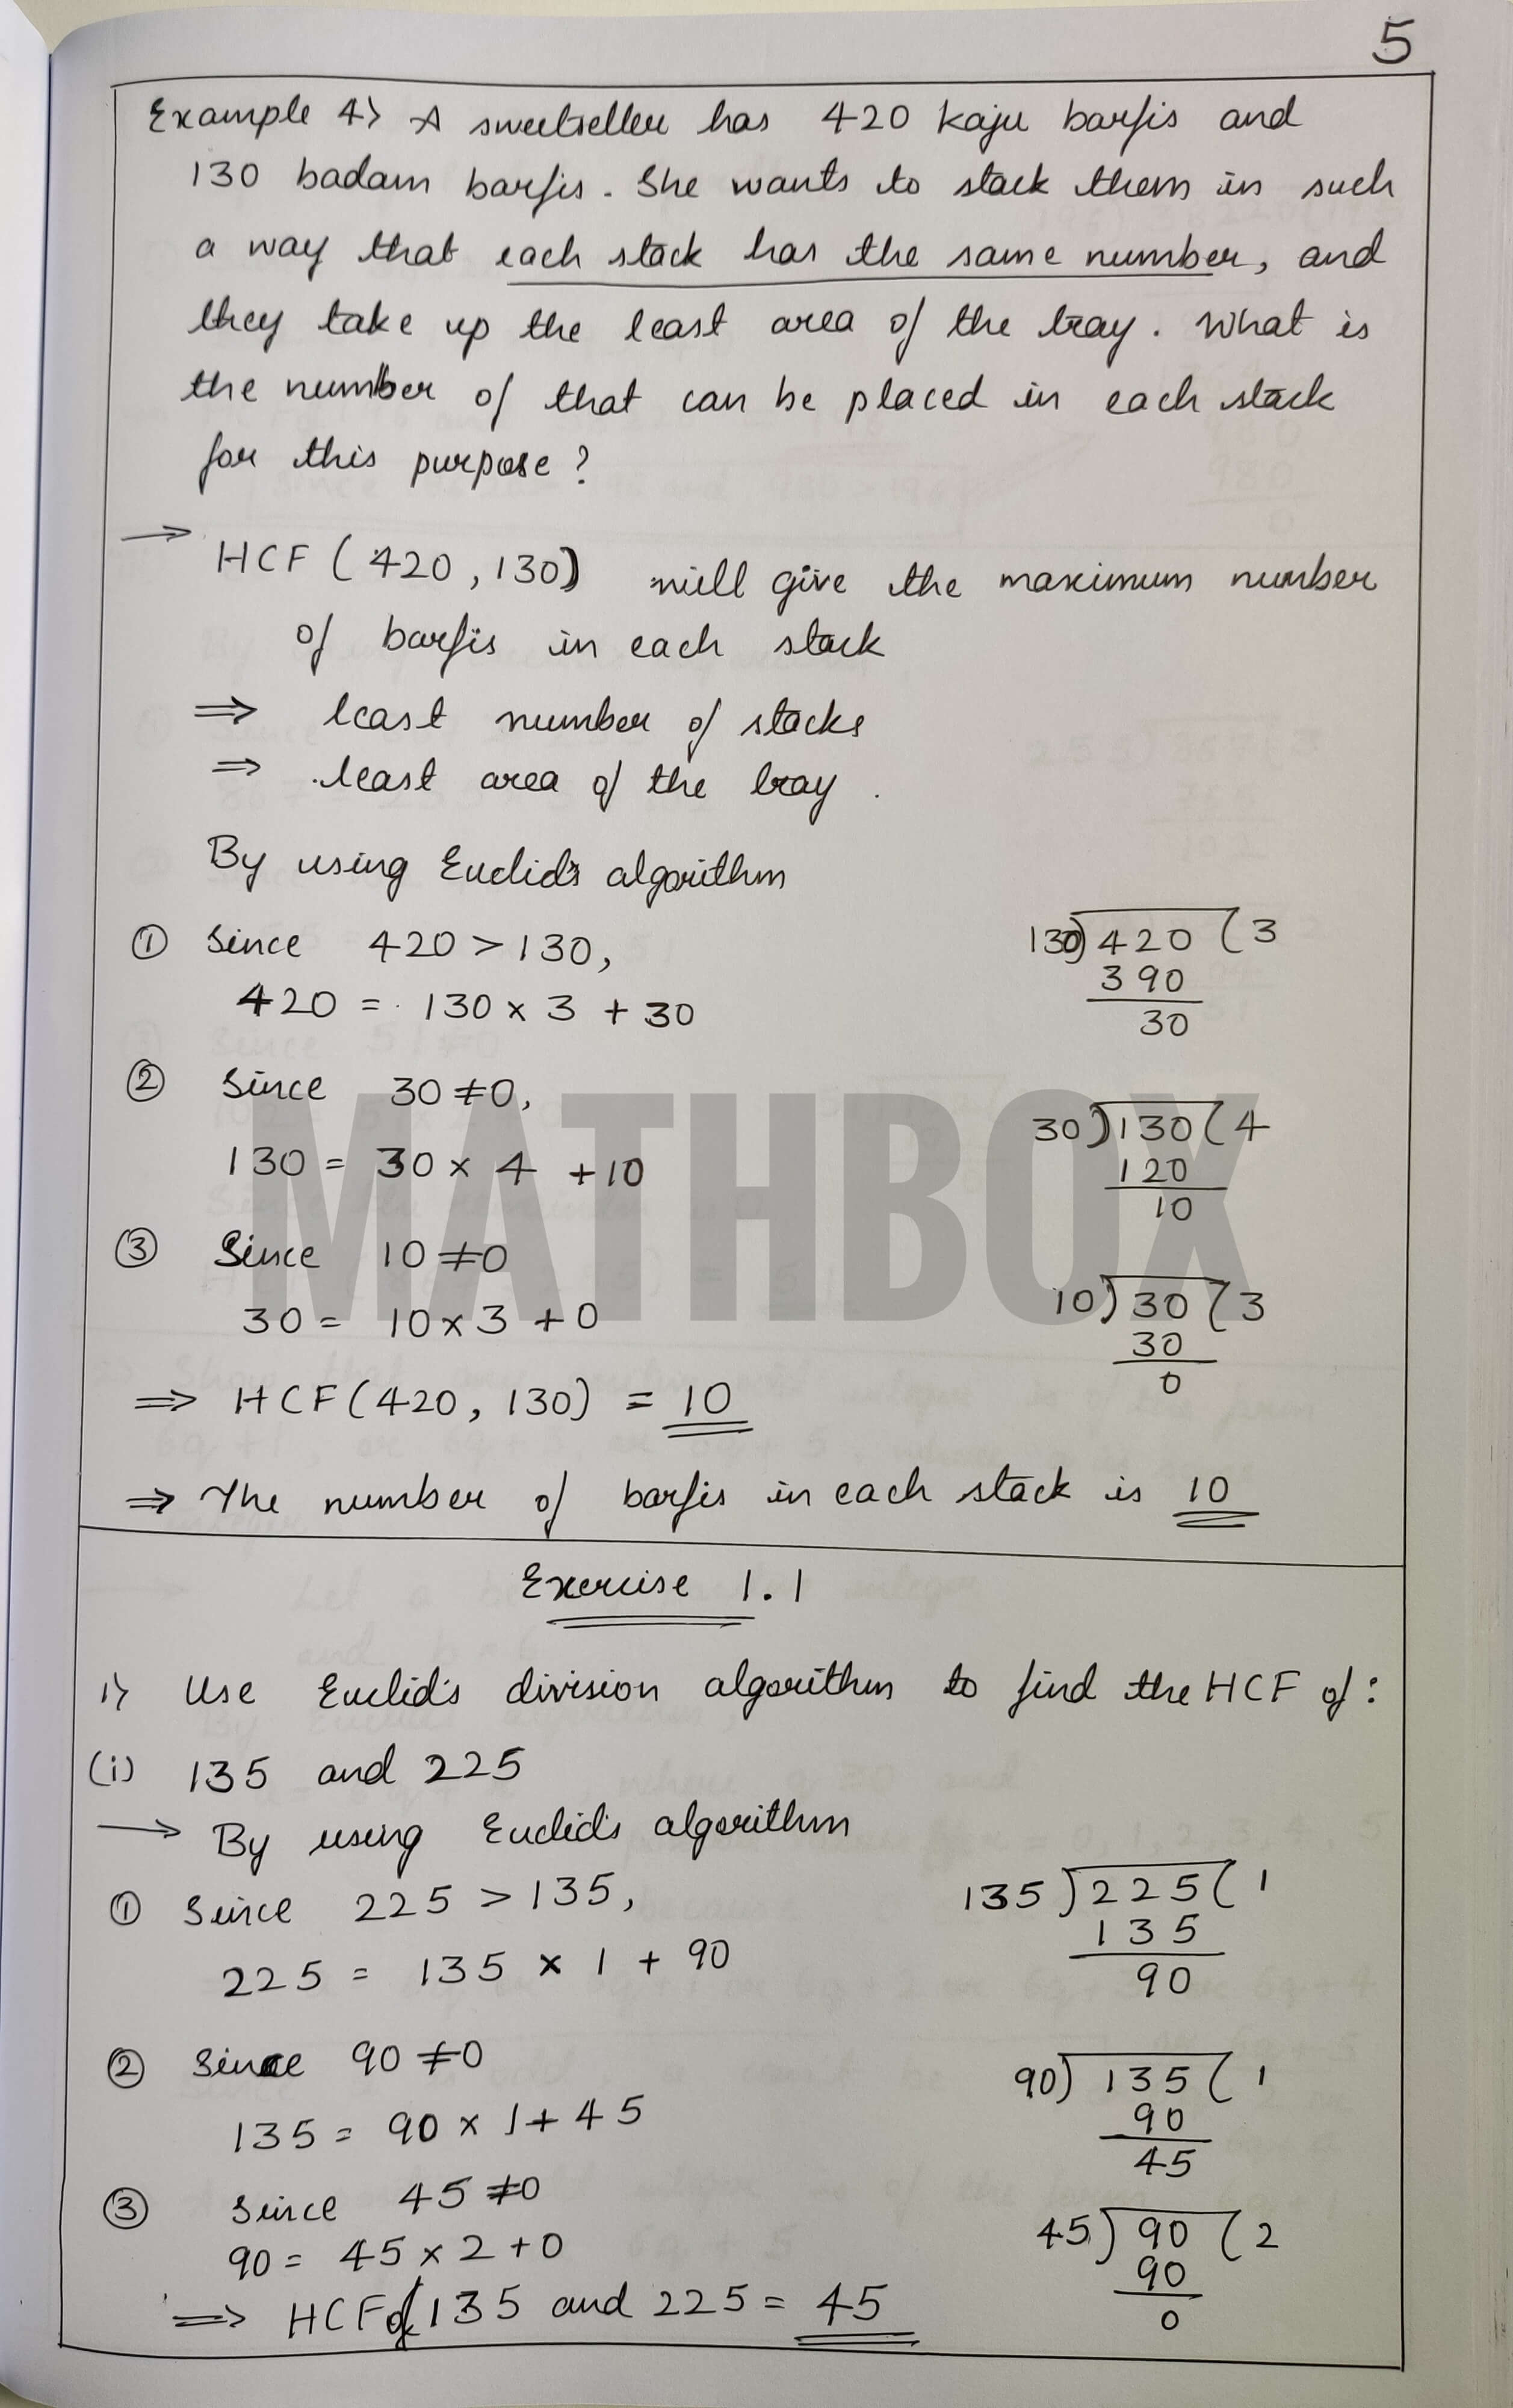 5
Example 4> A sweetseller has 420 kaju barfis and
130 badam barfis. She wants to stack them in such
a way that each stack has the same number, and
they take up the least area of the tray. What is
the number of that can be placed in each stack
for this purpose?
→ HCF (420, 130) will give the maximum number
of barfis in each stack
⇒ least number of stacks
⇒ least area of the tray.
By using Euclid's algorithm
① Since 420 > 130,
420 = 130 × 3 + 30
130)420(3
390
30
② Since 30 ≠ 0,
130 = 30 × 4 + 10
30)130(4
120
10
③ Since 10 ≠ 0
30 = 10 × 3 + 0
10)30(3
30
0
MATHBOX
⇒ HCF(420, 130) = 10
⇒ The number of barfis in each stack is 10
Exercise 1.1
1> Use Euclid's division algorithm to find the HCF of:
(i) 135 and 225
→ By using Euclid's algorithm
① Since 225 > 135,
225 = 135 × 1 + 90
135)225(1
135
90
② Since 90 ≠ 0
135 = 90 × 1 + 45
90)135(1
90
45
③ Since 45 ≠ 0
90 = 45 × 2 + 0
45)90(2
90
0
⇒ HCF of 135 and 225 = 45